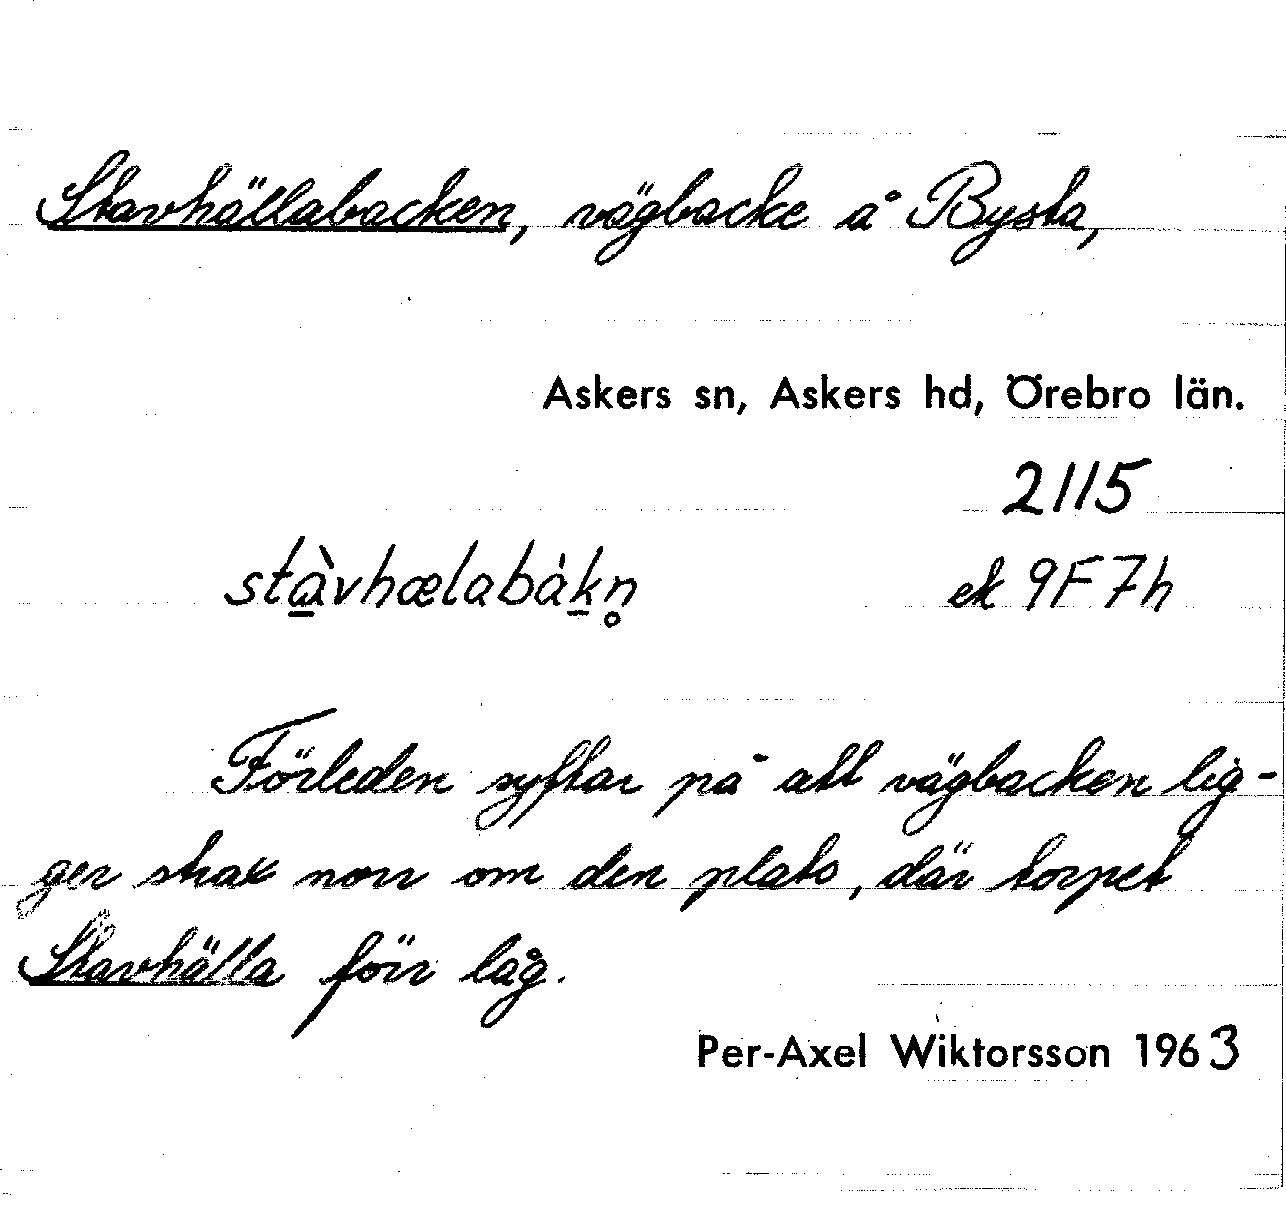 Stavhällabacken, vägbacke å Bysta,
Askers sn, Askers hd, Örebro län.
2115
stà̱vhælabàḵn̥ ek 9F7h
Förleden syftar på att vägbacken lig-
ger strax norr om den plats, där torpet
Stavhälla förr låg.
Per-Axel Wiktorsson 1963